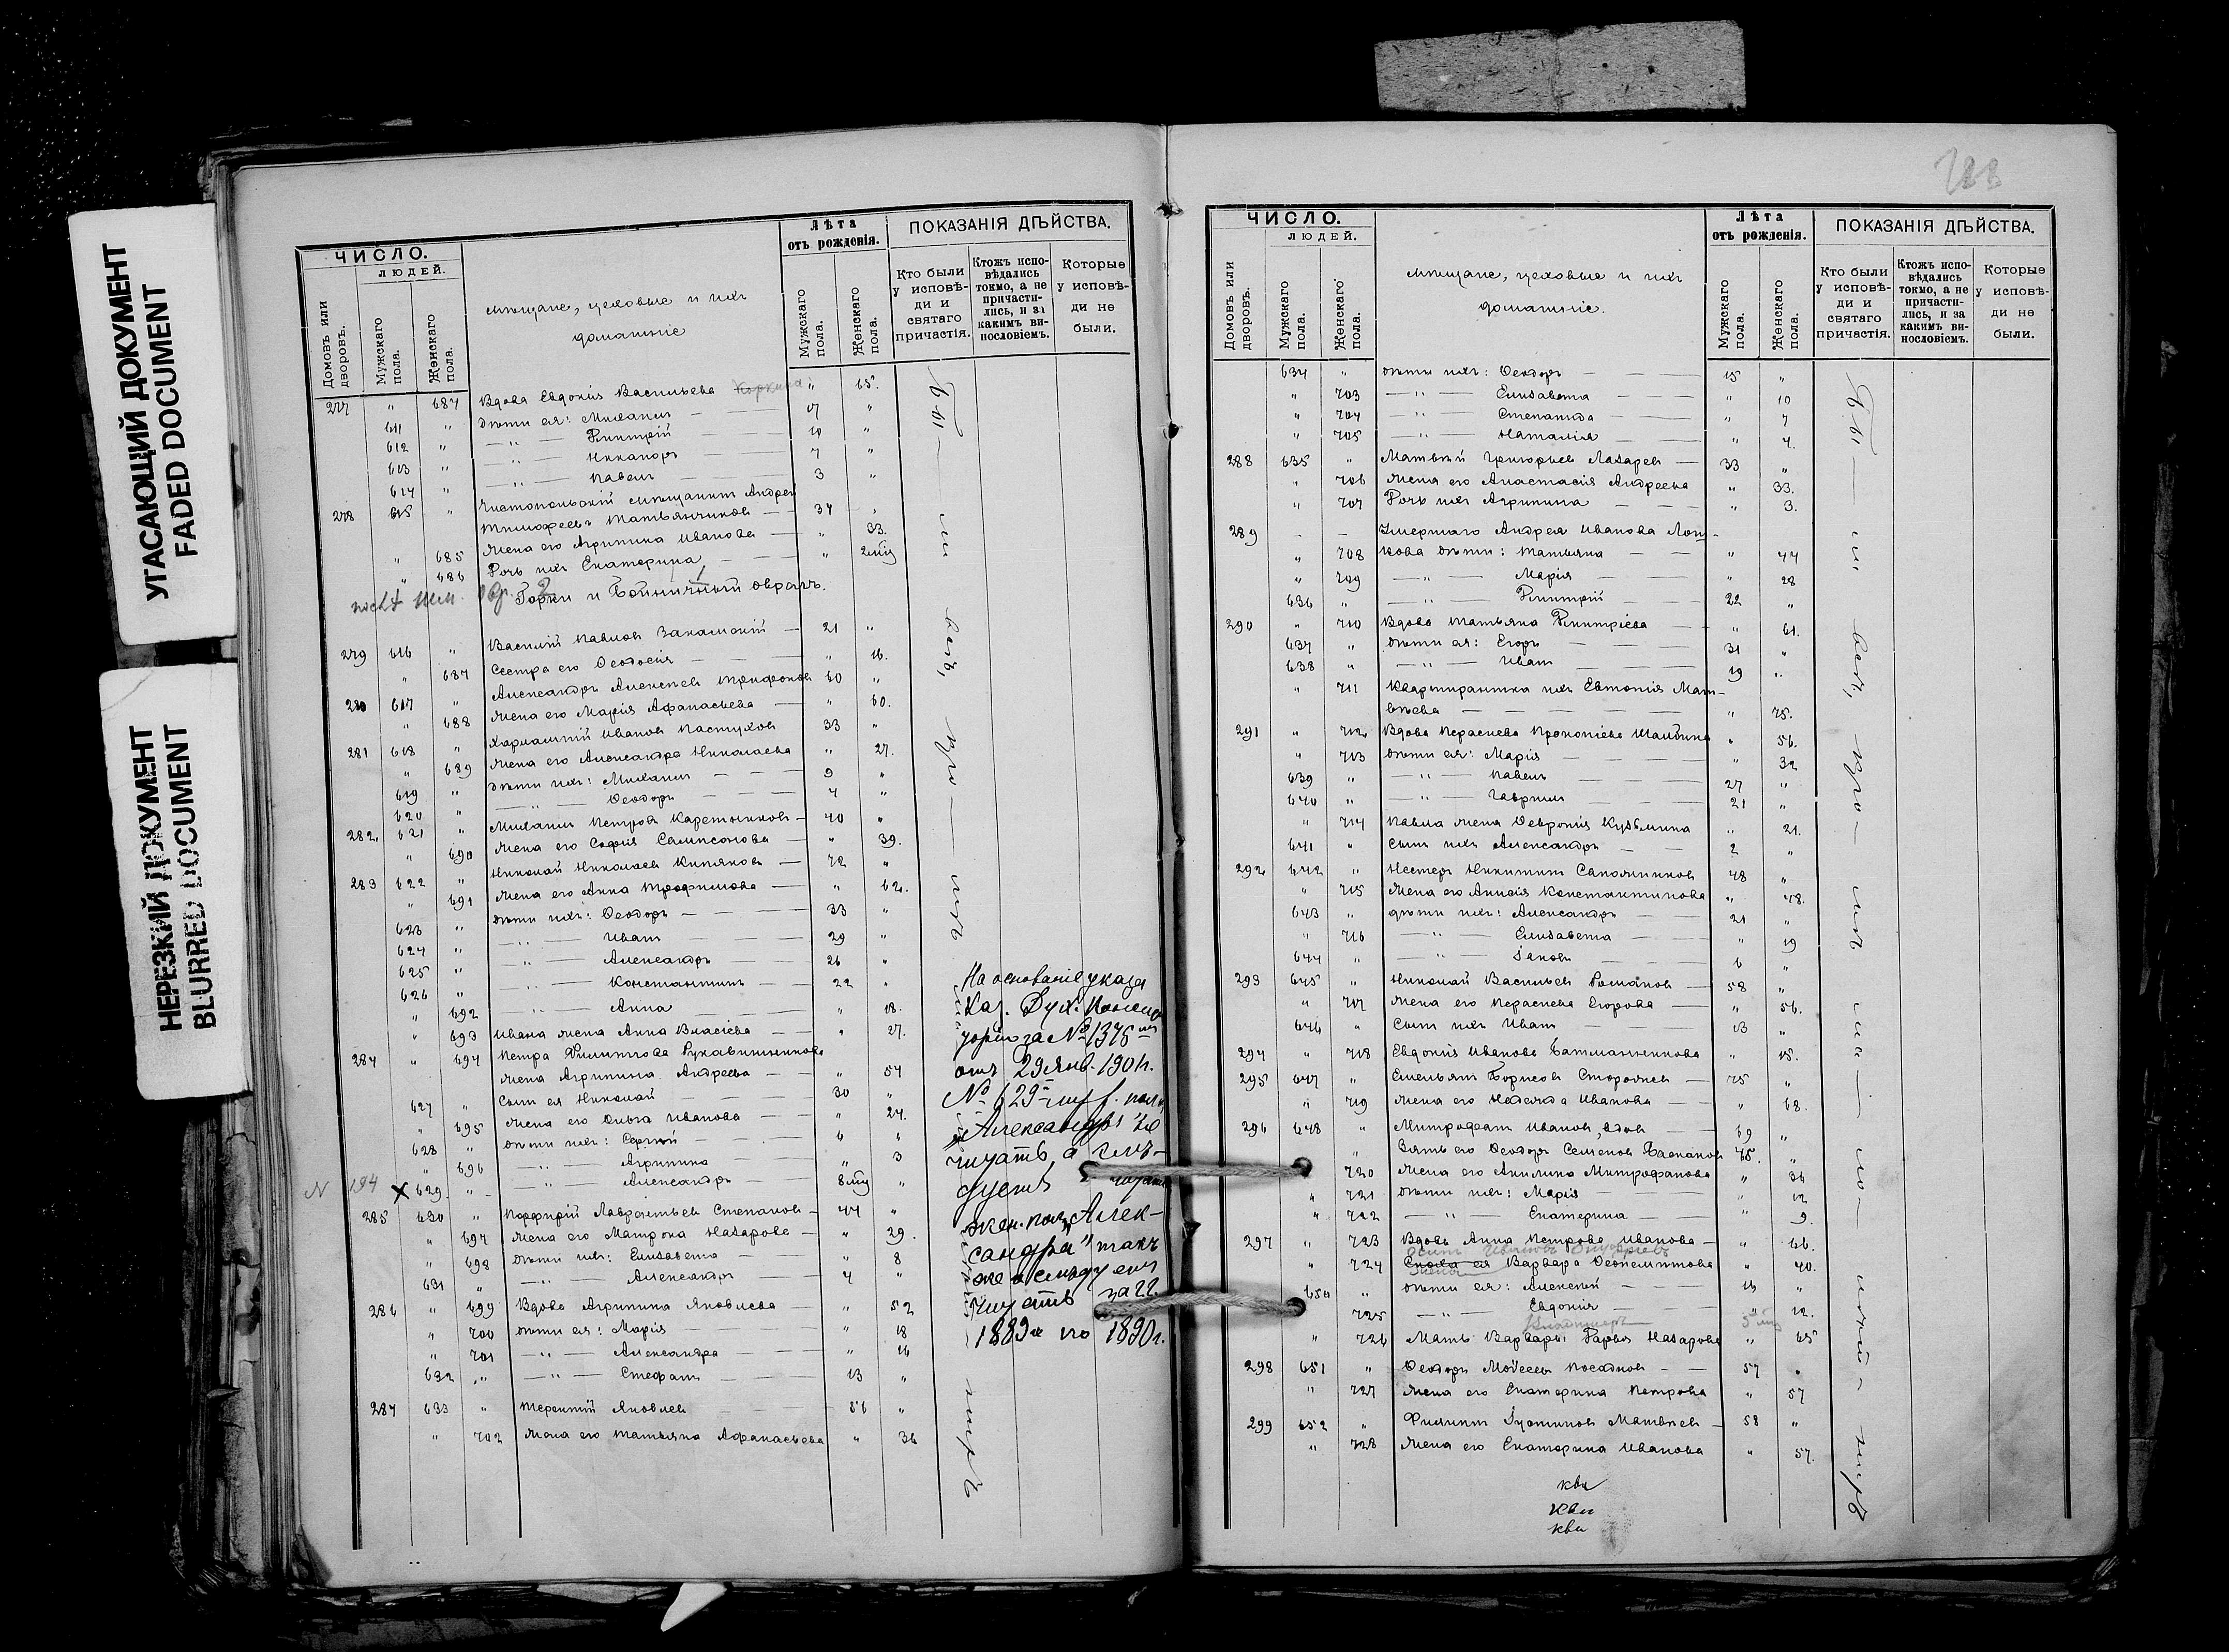 УГАСАЮЩИЙ ДОКУМЕНТ
FADED DOCUMENT
НЕРЕЗКИЙ ДОКУМЕНТ
BLURRED DOCUMENT
ЧИСЛО.
ЛЮДЕЙ.
Домовъ или дворовъ.
Мужскаго пола.
Женскаго пола.
мѣщане, цеховые и ихъ
домашніе
Лѣта
отъ рожденія.
Мужскаго пола.
Женскаго пола.
ПОКАЗАНІЯ ДѢЙСТВА.
Кто были у исповѣди и святаго причастія.
Ктожъ исповѣдались токмо, а не причастились, и за какимъ винословіемъ.
Которые у исповѣди не были.
277 " 684 Вдова Евдокія Васильева " 65.
611 " дѣти ея: Михаилъ 17 "
612 " —"— Димитрій 10 "
613 " —"— Никаноръ 7 "
614 " —"— Павелъ 3 "
278 615 " Чистопольскій мѣщанинъ Андрей
Тимофеевъ Татьянчиковъ 34 "
" 685 Жена его Агрипина Иванова " 33.
" 686 Дочь ихъ Екатерина " 2 мц
Горки и Бойничный оврагъ.
279 616 " Василій Павловъ Закамскій 21 "
" 687 Сестра его Ѳеодосія " 16.
280 617 " Александръ Алексѣевъ Трифоновъ 60 "
" 688 Жена его Марія Афанасьева " 60.
281 618 " Харлампій Ивановъ Пастуховъ 33 "
" 689 Жена его Александра Николаева " 27.
619 " дѣти ихъ: Михаилъ 9 "
620 " —"— Ѳеодоръ 4 "
282 621 " Михаилъ Петровъ Каретниковъ 40 "
" 690 Жена его Софія Сампсонова " 39.
283 622 " Николай Николаевъ Кипяковъ 72 "
" 691 Жена его Анна Трофимова " 62.
623 " дѣти ихъ: Ѳеодоръ 33 "
624 " —"— Иванъ 29 "
625 " —"— Александръ 26 "
626 " —"— Константинъ 22 "
" 692 —"— Анна " 18.
" 693 Ивана жена Анна Власіева " 27.
284 " 694 Петра Филиппова Рукавишникова
жена Агрипина Андреева " 54
627 " Сынъ ея Николай 30 "
" 695 Жена его Ольга Иванова " 24.
628 " дѣти ихъ: Сергій 6 "
" 696 —"— Агрипина " 3
N 194 X 629. " —"— Александръ 8 мц "
285 630 " Порфирій Лаврентьевъ Степановъ 44 "
" 697 Жена его Матрона Назарова " 29.
" 698 дѣти ихъ: Елизавета " 8
631 " —"— Александръ 4 "
286 " 699 Вдова Агрипина Яковлева " 52
" 700 дѣти ея: Марія " 18
" 701 —"— Александра " 16
632 " —"— Стефанъ 13 "
287 633 " Терентій Яковлевъ 56 "
" 702 Жена его Татьяна Афанасьева " 36
На основаніе указа
Каз. Дух. Консис
торіи за № 1375
отъ 29 Янв. 1901 г.
№ 629
"Александръ" не
читать, а слѣ-
дуетъ читать
жен. пола "Алек-
сандра" такъ
же и слѣдуетъ
читать за гг.
1889 и по 1890 г.
ЧИСЛО.
ЛЮДЕЙ.
Домовъ или дворовъ.
Мужскаго пола.
Женскаго пола.
мѣщане, цеховые и ихъ
домашніе.
Лѣта
отъ рожденія.
Мужскаго пола.
Женскаго пола.
ПОКАЗАНІЯ ДѢЙСТВА.
Кто были у исповѣди и святаго причастія.
Ктожъ исповѣдались токмо, а не причастились, и за какимъ винословіемъ.
Которые у исповѣди не были.
634 " дѣти ихъ: Ѳеодоръ 15 "
" 703 —"— Елизавета " 10
" 704 —"— Степанида " 7
" 705 —"— Наталія " 4.
288 635 " Матвѣй Григорьевъ Лазаревъ 33 "
" 706 Жена его Анастасія Андреева " 33.
" 707 Дочь ихъ Агрипина " 3.
289 - - Умершаго Андрея Иванова Лоп-
" 708 кова дѣти: Татьяна " 44
" 709 —"— Марія " 28
636 " —"— Димитрій 22 "
290 " 710 Вдова Татьяна Димитріева " 61.
637 " дѣти ея: Егоръ 31 "
638 " —"— Иванъ 19 "
" 711 Квартирантка ихъ Евгопія Мат-
вѣева " 75.
291 " 712 Вдова Параскева Прокопіева " 56.
" 713 дѣти ея: Марія " 32
639 " —"— Павелъ 27 "
640 " —"— Гавріилъ 21 "
" 714 Павла жена Ѳевронія Кузьмина " 21.
641 " Сынъ ихъ Александръ 2 "
292 642 " Нестеръ Никитинъ Сапожниковъ 48 "
" 715 Жена его Анисія Константинова " 48.
643 " дѣти ихъ: Александръ 21 "
" 716 —"— Елизавета " 19
644 " —"— Іаковъ 6 "
293 645 " Николай Васильевъ Романовъ 58 "
" 717 Жена его Параскева Егорова " 56.
646 " Сынъ ихъ Иванъ 13 "
294 " 718 Евдокія Иванова Башмашникова " 15.
295 647 " Емельянъ Борисовъ Стородневъ 75 "
" 719 Жена его Надежда Иванова " 68.
296 648 " Митрофанъ Ивановъ, вдов 69 "
" Зять его Ѳеодоръ Семеновъ Баскаковъ 45. "
" 720 Жена его Акилина Митрофанова " 36
" 721 дѣти ихъ: Марія " 12
" 722 —"— Екатерина " 9.
297 " 723 Вдова Анна Петрова Иванова " 66.
" 724 Сноха ея Варвара Ѳеоктистова " 40.
650 " дѣти ея: Алексѣй 13 "
725 —"— Евдокія " 12.
" 726 Мать Варвары Дарья Назарова " 65
298 651 " Ѳеодоръ Моисеевъ Посадновъ 57 "
" 727 Жена его Екатерина Петрова " 57
299 652 " Филиппъ Іустиновъ Матвѣевъ 58 "
" 728 Жена его Екатерина Иванова " 57.